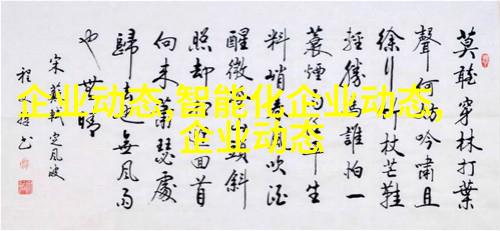 莫聽穿林打葉
聲何妨吟嘯且
徐行竹杖芒鞋
輕勝馬誰怕一
蓑煙雨任平生
料峭春風吹酒
醒微冷山頭斜
照却相迎回首
向來蕭瑟處
歸去也無風雨
也無晴
宋蘇軾定風波
企业动态,智能化企业动态,
企业动态